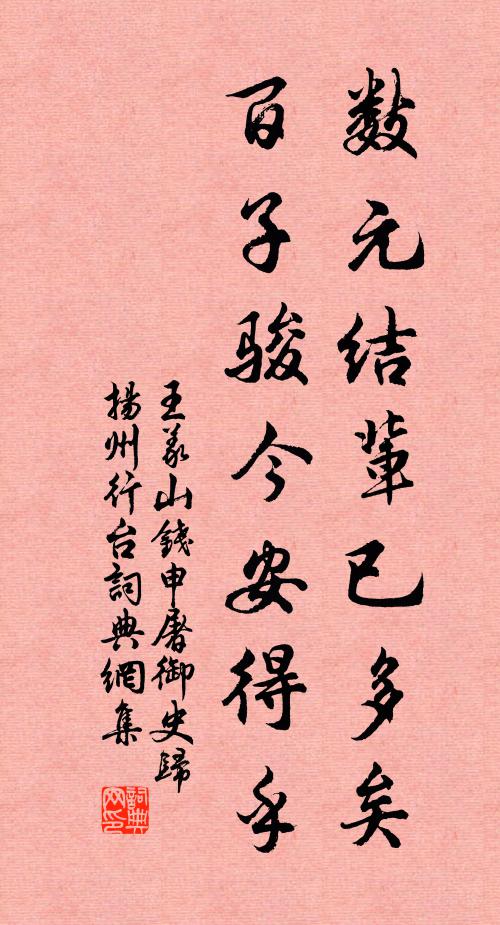 数元结辈已多矣
百子骏今安得乎
王义山錢申屠御史歸
揚州行台詞典網集
詞典网印